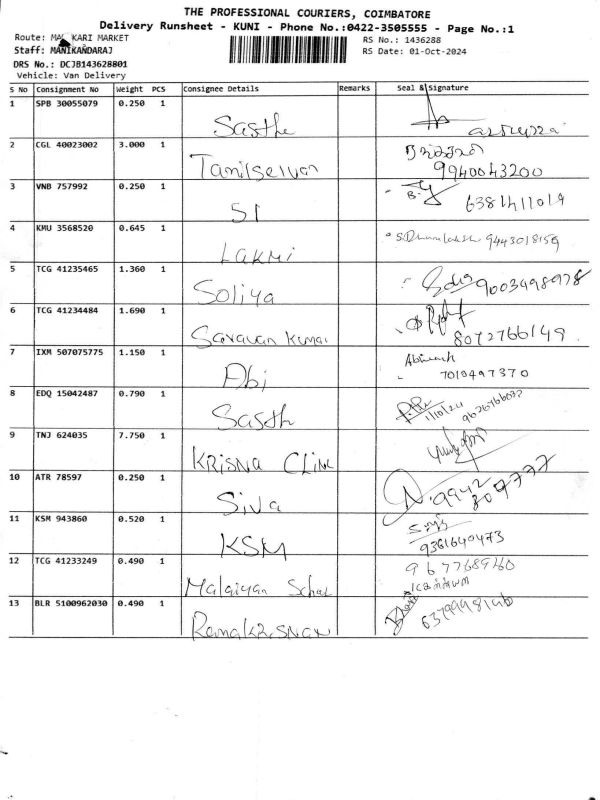 THE PROFESSIONAL COURIERS, COIMBATORE
Delivery Runsheet - KUNI - Phone No.:0422-3505555 - Page No.:1
Route: KARI MARKET
RS No.: 1436288
Staff: MANIKANDARAJ
RS Date: 01-Oct-2024
DRS No.: DCJB143628801
Vehicle: Van Delivery
S No Consignment No Weight PCS Consignee Details Remarks Seal & Signature
1 SPB 30055079 0.250 1 Sasthe
2 CGL 40023002 3.000 1 Tamilselvan 9940043200
3 VNB 757992 0.250 1 SI
4 KMU 3568520 0.645 1 Lakmi 9443018159
5 TCG 41235465 1.360 1 Soliya 9003498978
6 TCG 41234484 1.690 1 Saravan Kumar 8072766149
7 IXM 507075775 1.150 1 Abi Abinash 7019497370
8 EDQ 15042487 0.790 1 Sasthe 1/10/24
9 TNJ 624035 7.750 1 Krisna Clinc
10 ATR 78597 0.250 1 Siva
11 KSM 943860 0.520 1 KSM 9361640473
12 TCG 41233249 0.490 1 Malaiyan 9677689460
13 BLR 5100962030 0.490 1 Ramakrisnan